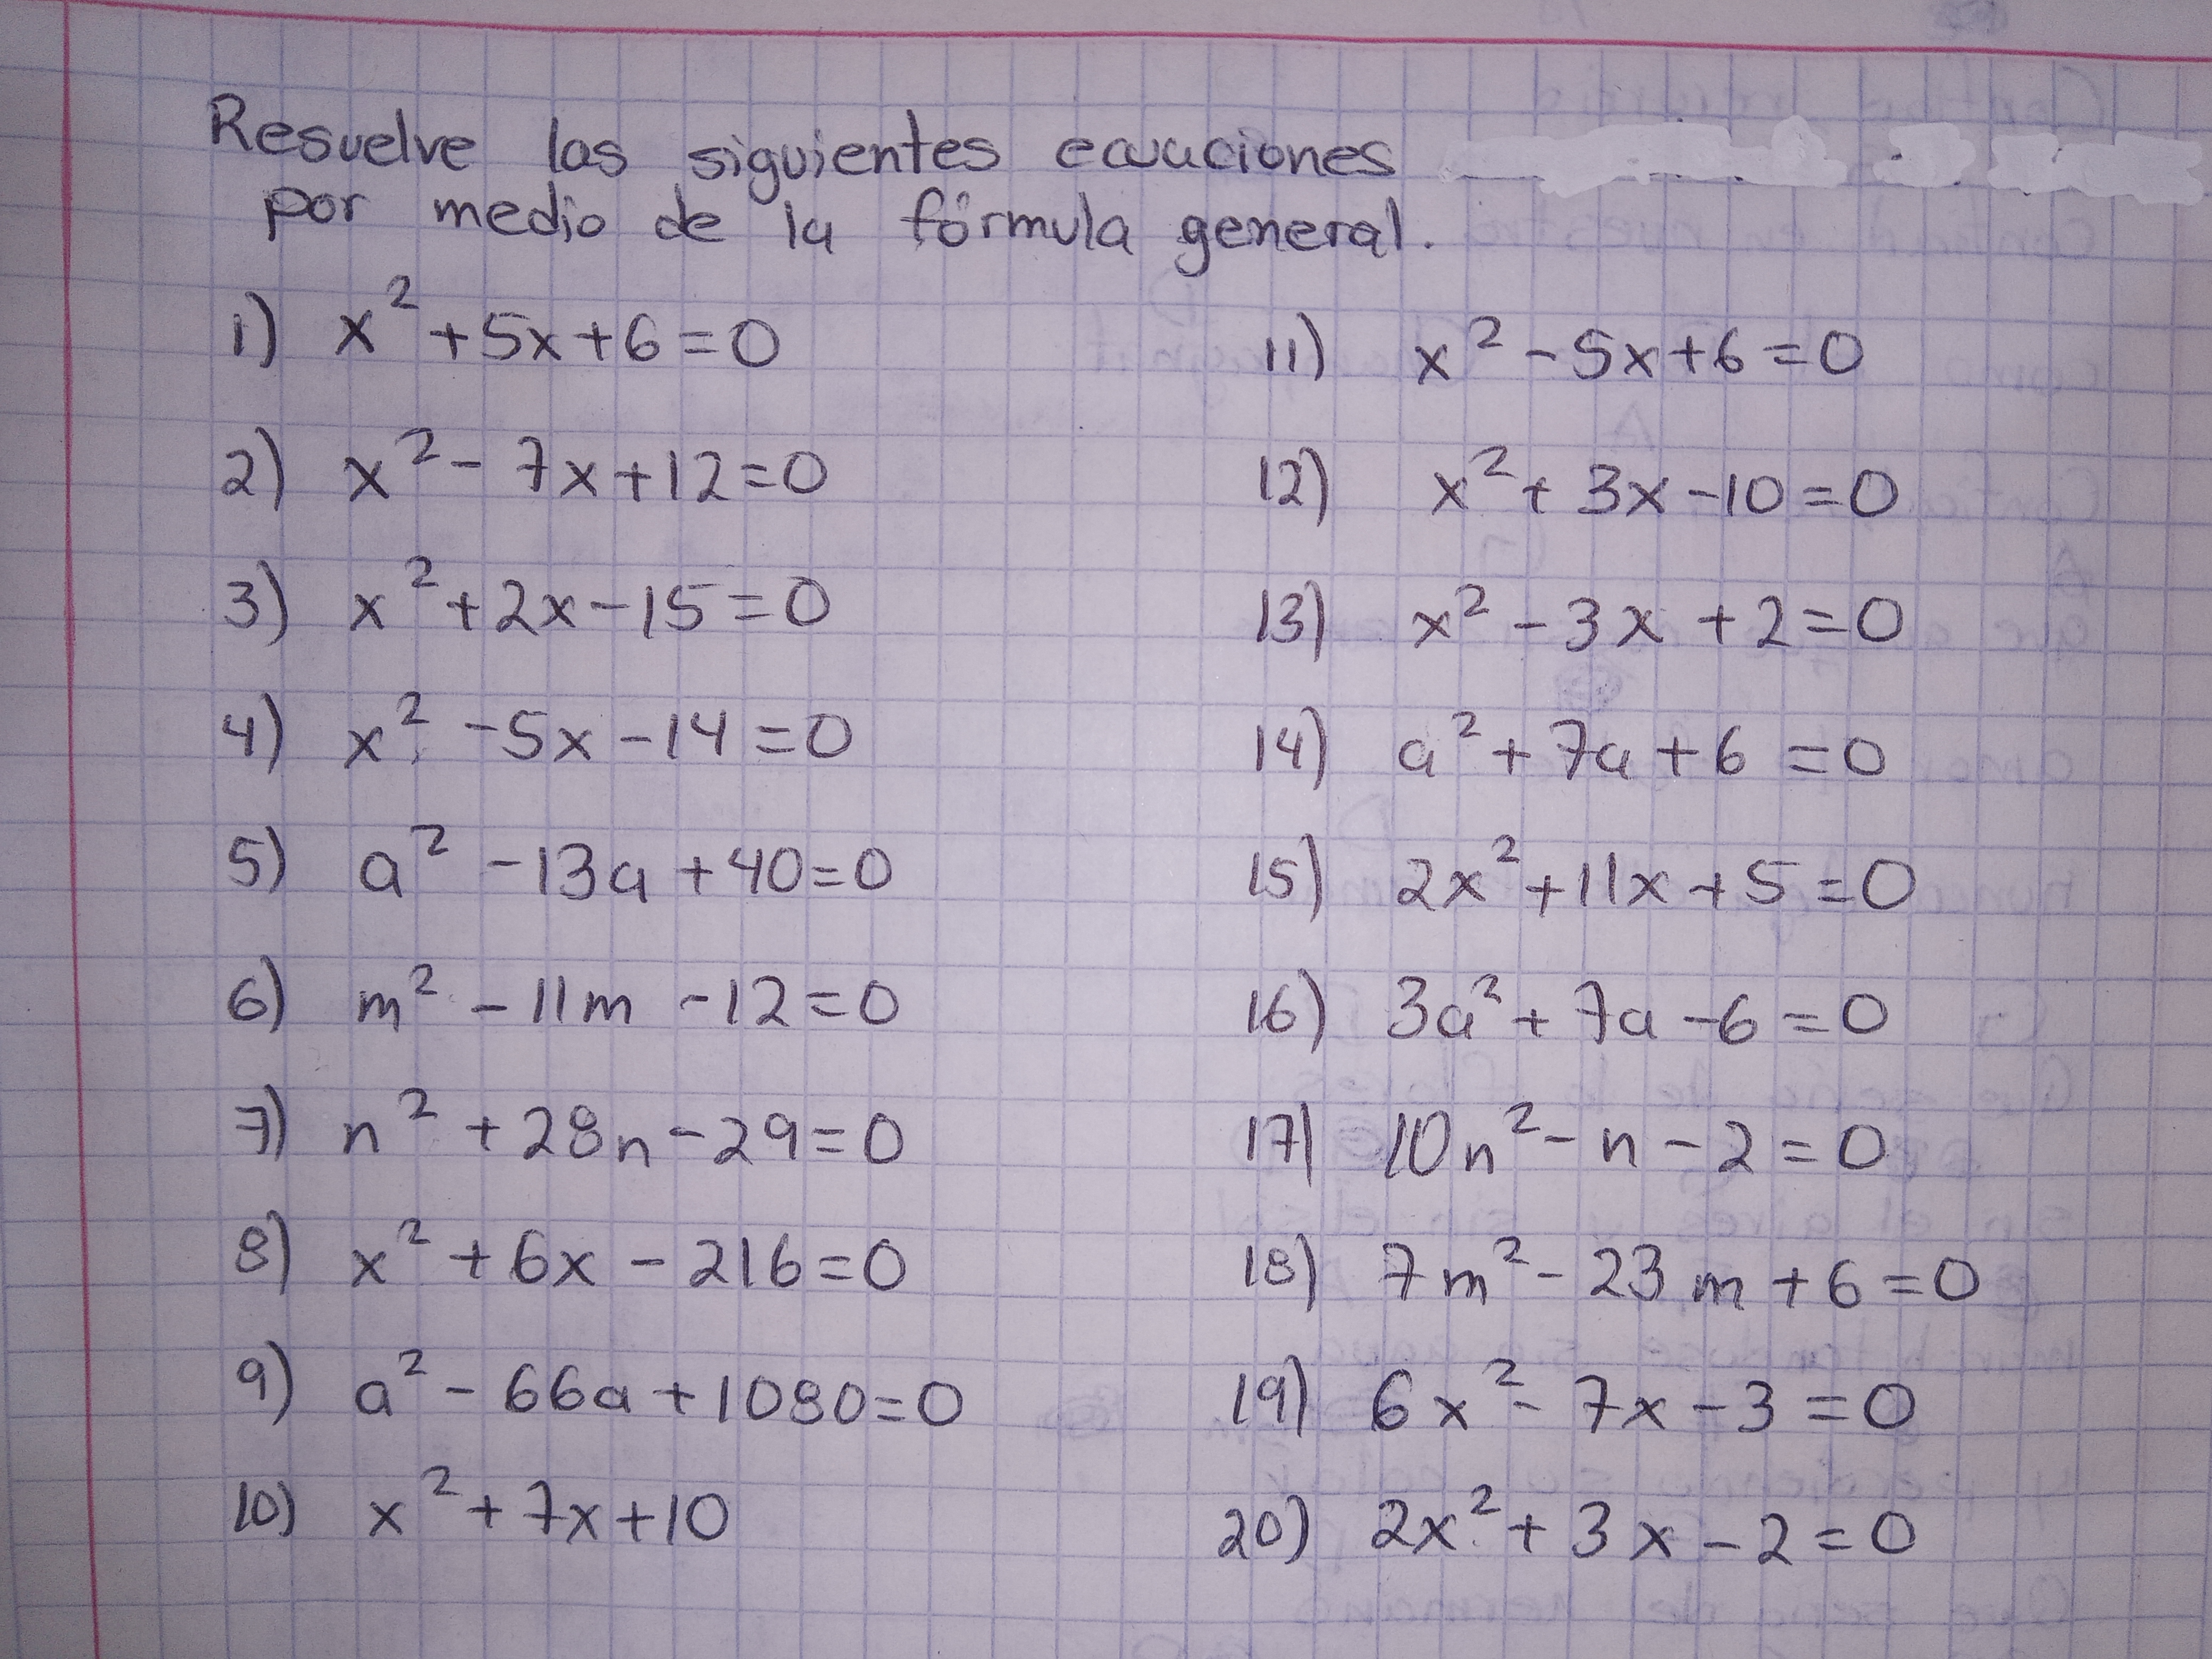 Resuelve las siguientes ecuaciones
por medio de la fórmula general.
1) x² + 5x + 6 = 0
2) x² - 7x + 12 = 0
3) x² + 2x - 15 = 0
4) x² - 5x - 14 = 0
5) a² - 13a + 40 = 0
6) m² - 11m - 12 = 0
7) n² + 28n - 29 = 0
8) x² + 6x - 216 = 0
9) a² - 66a + 1080 = 0
10) x² + 7x + 10
11) x² - 5x + 6 = 0
12) x² + 3x - 10 = 0
13) x² - 3x + 2 = 0
14) a² + 7a + 6 = 0
15) 2x² + 11x + 5 = 0
16) 3a² + 7a - 6 = 0
17) 10n² - n - 2 = 0
18) 7m² - 23m + 6 = 0
19) 6x² - 7x - 3 = 0
20) 2x² + 3x - 2 = 0